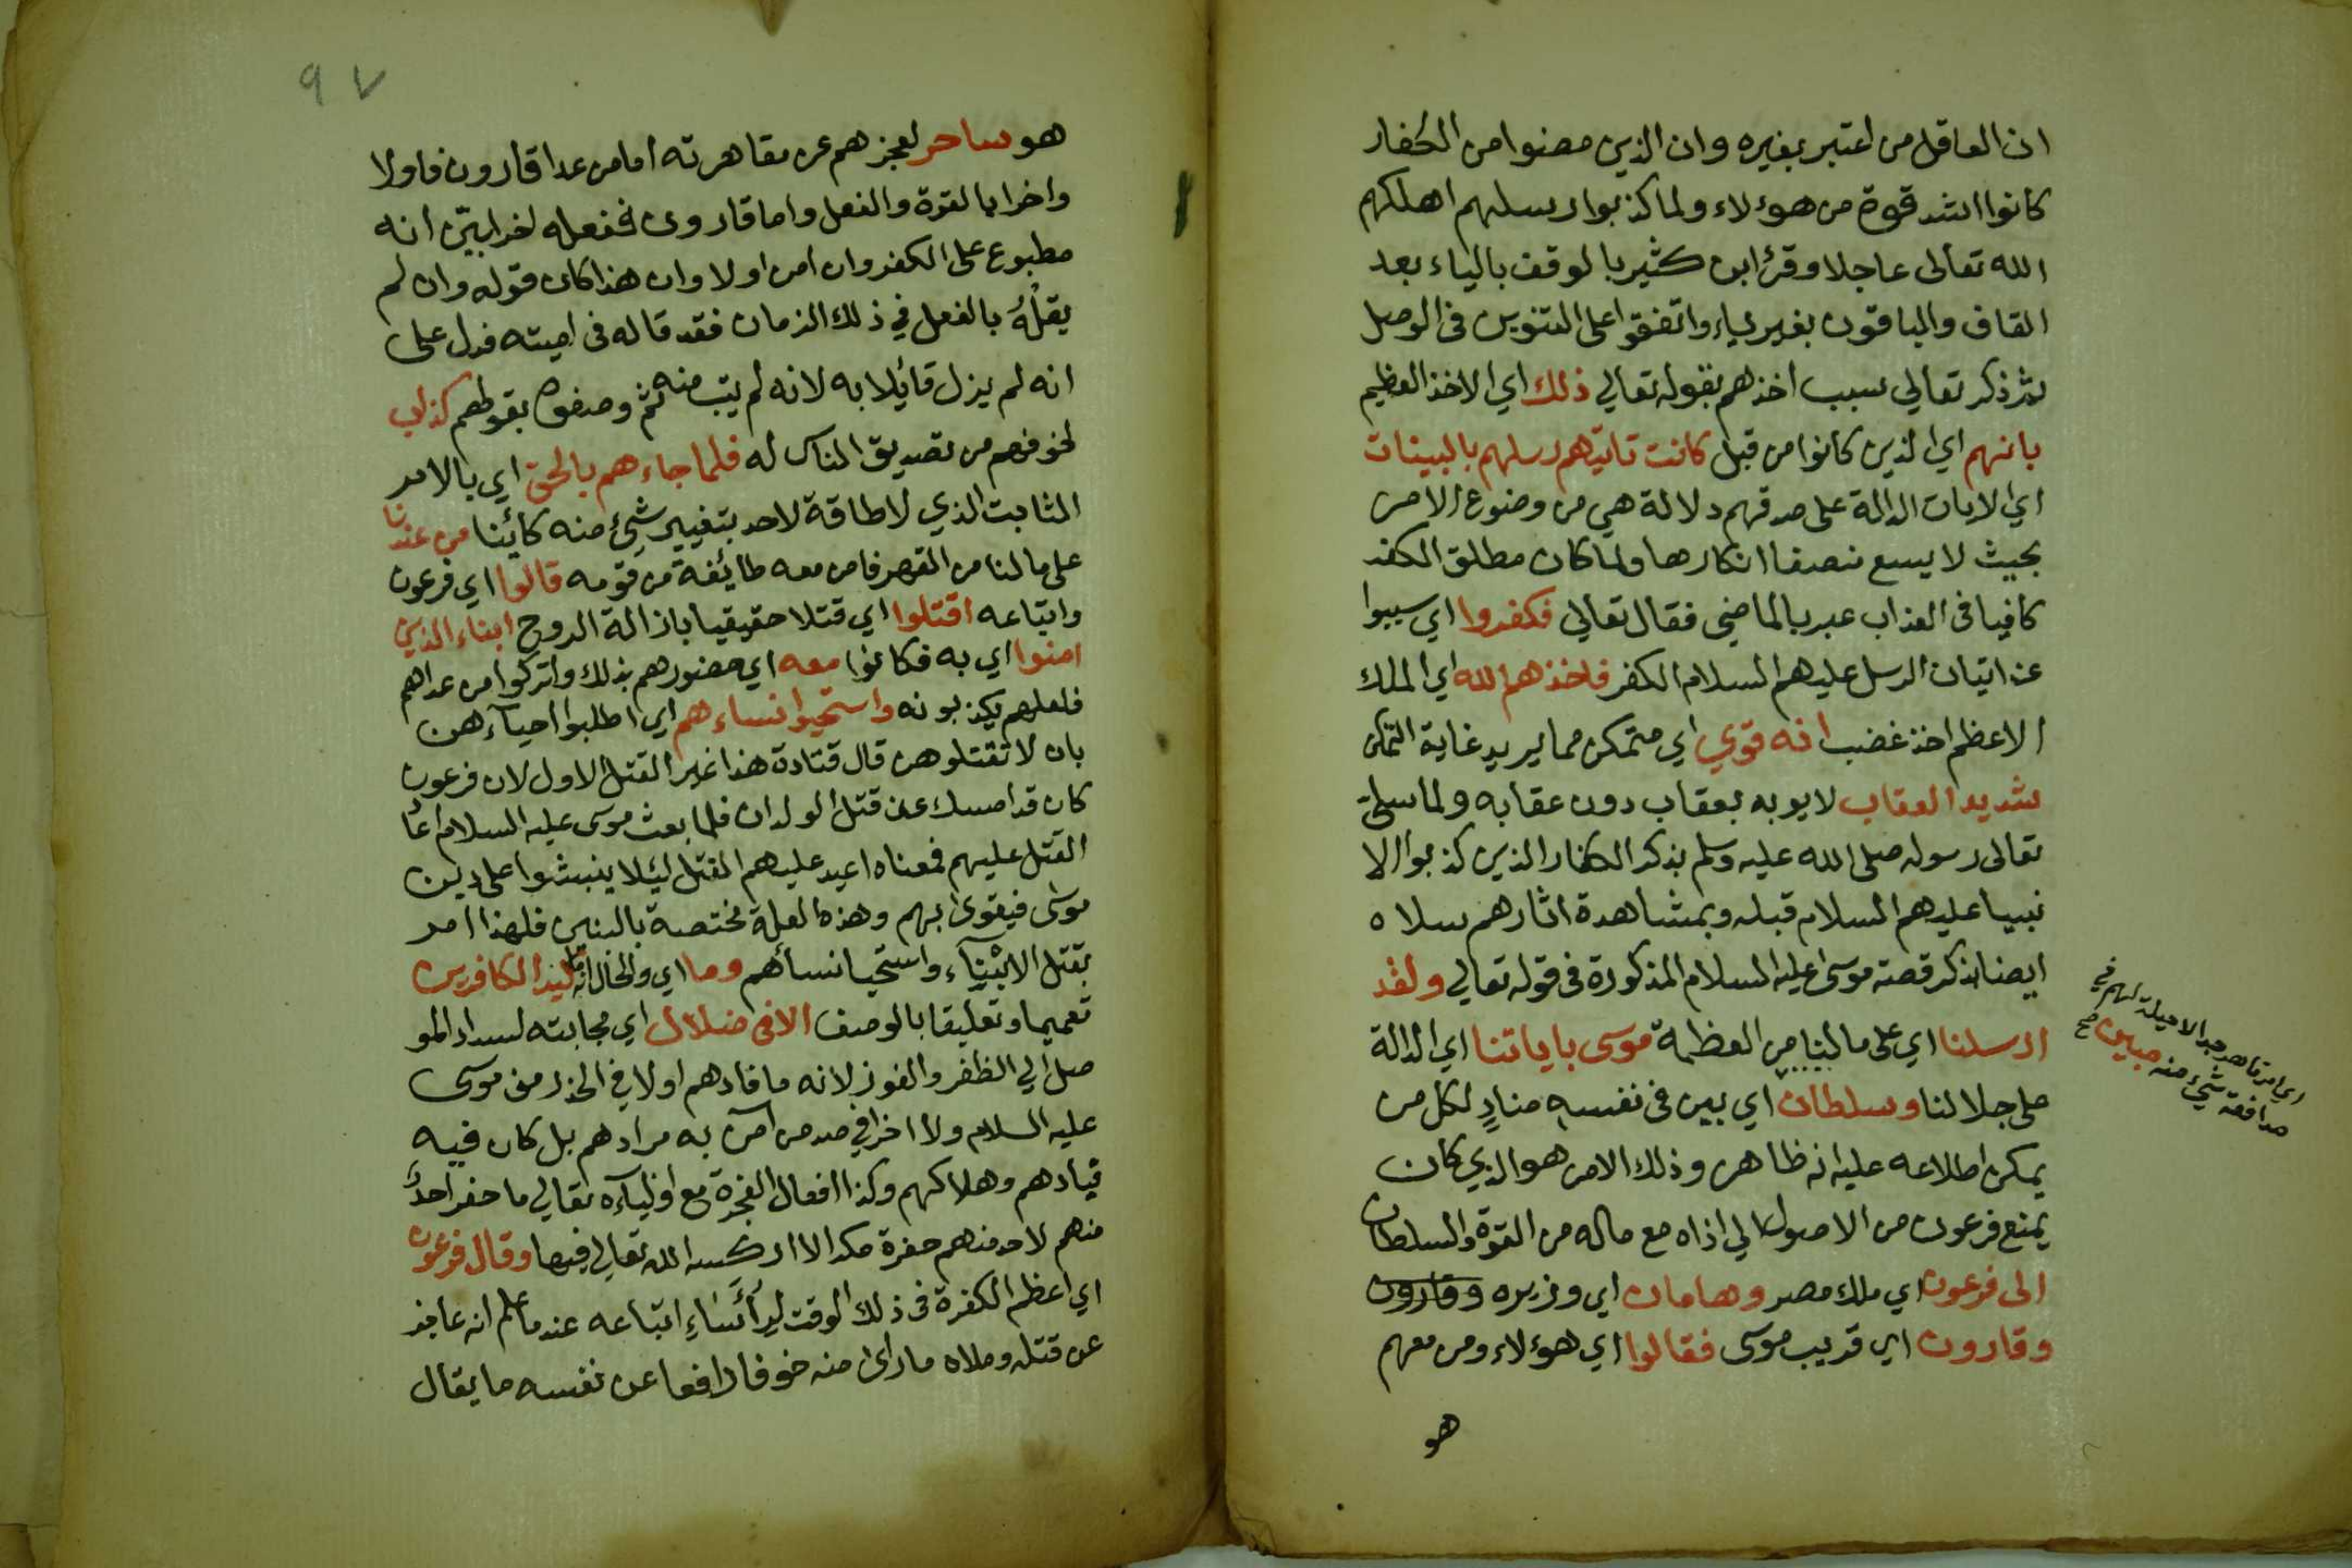 ان العاقل من اعتبر بغيره وان الذين مضوا من الكفار
كانوا اشد قوة من هوءلاء ولما كذبوا رسلهم اهلكهم
الله تعالى عاجلا وقرئ ابن كثير بالوقف بالياء بعد
القاف والباقون بغير ياء واتفقوا على التنوين فى الوصل
ثم ذكر تعالي سبب اخذهم بقوله تعالي ذلك اي الاخذ العظيم
بانهم اي الذين كانوا من قبل كانت تاتيهم رسلهم بالبينات
اي الايات الدالة على صدقهم دلالة هي من وضوع الامر
بحيث لا يسع منصفا انكارها ولما كان مطلق الكفر
كافيا فى العذاب عبر بالماضي فقال تعالي فكفروا اي سببوا
عند اتيان الرسل عليهم السلام الكفر فاخذهم الله اي الملك
الاعظم اخذ غضب انه قوي اي متمكن مما يريد غاية التمكن
شديد العقاب لا يوبه بعقاب دون عقابه ولما سلى
تعالى رسوله صلى الله عليه وسلم بذكر الكفار الذين كذبوا الا
نبيا عليهم السلام قبله وبمشاهدة اثارهم سلاه
ايضا بذكر قصته موسى عليه السلام المذكورة فى قوله تعالي ولقد
ارسلنا اي على مالنا من العظمة موسى باياتنا اي الدالة
على جلالنا وسلطان اي بين فى نفسه منادٍ لكل من
يمكن اطلاعه عليه انه ظاهر وذلك الامر هو الذي كان
يمنع فرعون من الاصول الي اذاه مع ماله من القوة والسلطان
الى فرعون اي ملك مصر وهامان اي وزيره وقارون
وقارون اي قريب موسى فقالوا اي هوءلاء ومن معهم
هو
اي امر قاهر جدا لا حيلة لهم في
مدافعة شيء منه مبين صح
٩٧
هو ساحر لعجزهم عن مقاهرته اما من عدا قارون فاولا
واخرا بالقوة والفعل واما قارون ففعله اخرا بيّن انه
مطبوع على الكفر وان امن اولا وان هذا كان قوله وان لم
يقلْهُ بالفعل في ذلك الزمان فقد قاله فى اميته فدل على
انه لم يزل قائلا به لانه لم يتب منه ثم وصفوه بقولهم كذاب
لخوفهم من تصديق الناس له فلما جاءهم بالحق اي بالامر
الثابت الذي لا طاقة لاحد بتغيير شئ منه كائنا من عندنا
على مالنا من القهر فامن معه طائفة من قومه قالوا اي فرعون
واتباعه اقتلوا اي قتلا حقيقيا بازالة الروح ابناء الذين
امنوا اي به فكانوا معه اي خصوهم بذلك واتركوا من عداهم
فلعلهم يكذبونه واستحيوا نساءهم اي اطلبوا احيآءهن
بان لا تقتلوهن قال قتادة هذا غير القتل الاول لان فرعون
كان قد امسك عن قتل الولدان فلما بعث موسى عليه السلام اعا
القتل عليهم فمعناه اعيد عليهم القتل ليئلا ينشوا على دين
موسى فيقوى بهم وهذه العلة مختصة بالبنين فلهذا امر
بقتل الابنآء واستحيا نسائهم وما اي والحال انه ما كيد الكافرين
تعميما وتعليقا بالوصف الا فى ضلال اي مجابته لسداد المو
صل الي الظفر والفوز لانه ما فادهم اولا في الحذر من موسى
عليه السلام ولا اخرا في صد من آمن به مرادهم بل كان فيه
تبادهم وهلاكهم وكذا افعال الفجرة مع اوليآءه تعالي ما حفر احدٌ
منهم لاحد منهم حفرة مكر الا اركسه الله تعالي فيها وقال فرعون
اي اعظم الكفرة فى ذلك الوقت لرأساءِ اتباعه عندما علم انه عاجز
عن قتله وملاه ما راى منه خوفا دافعا عن نفسه ما يقال